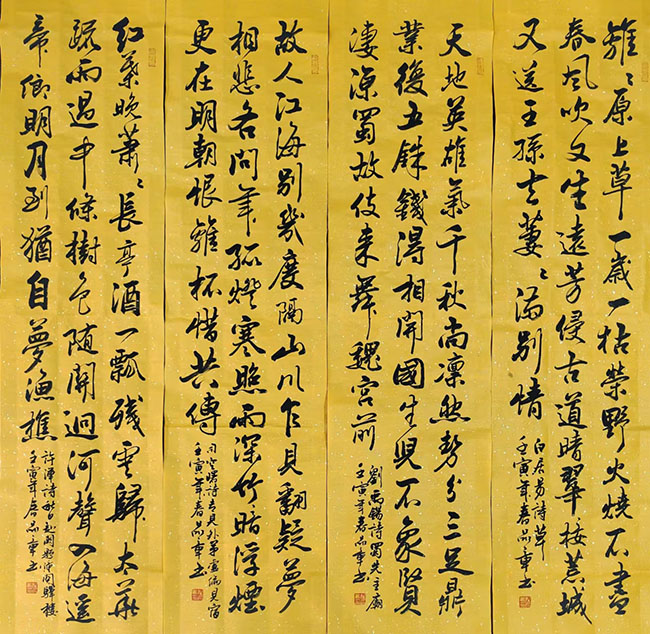 離〻原上草一歲一枯榮野火燒不盡
春風吹又生遠芳侵古道晴翠接荒城
又送王孫去萋〻滿別情
白居易詩草
壬寅年春品章书
天地英雄氣千秋尚凜然勢分三足鼎
業復五銖錢得相開國生兒不象賢
淒涼蜀故伎来舞魏宮前
劉禹錫詩蜀先主廟
壬寅年春品章书
故人江海別幾度隔山川乍見翻疑夢
相悲各問年孤燈寒照雨深竹暗浮煙
更在明朝恨離杯惜共傳
司空曙詩喜見外弟盧綸見宿
壬寅年春品章书
紅葉晚蕭〻長亭酒一瓢殘雲歸太華
疏雨過中條樹色隨關迥河聲入海遥
帝鄉明月到猶自夢漁樵
許渾詩秋日赴闕題潼關驛樓
壬寅年春品章书